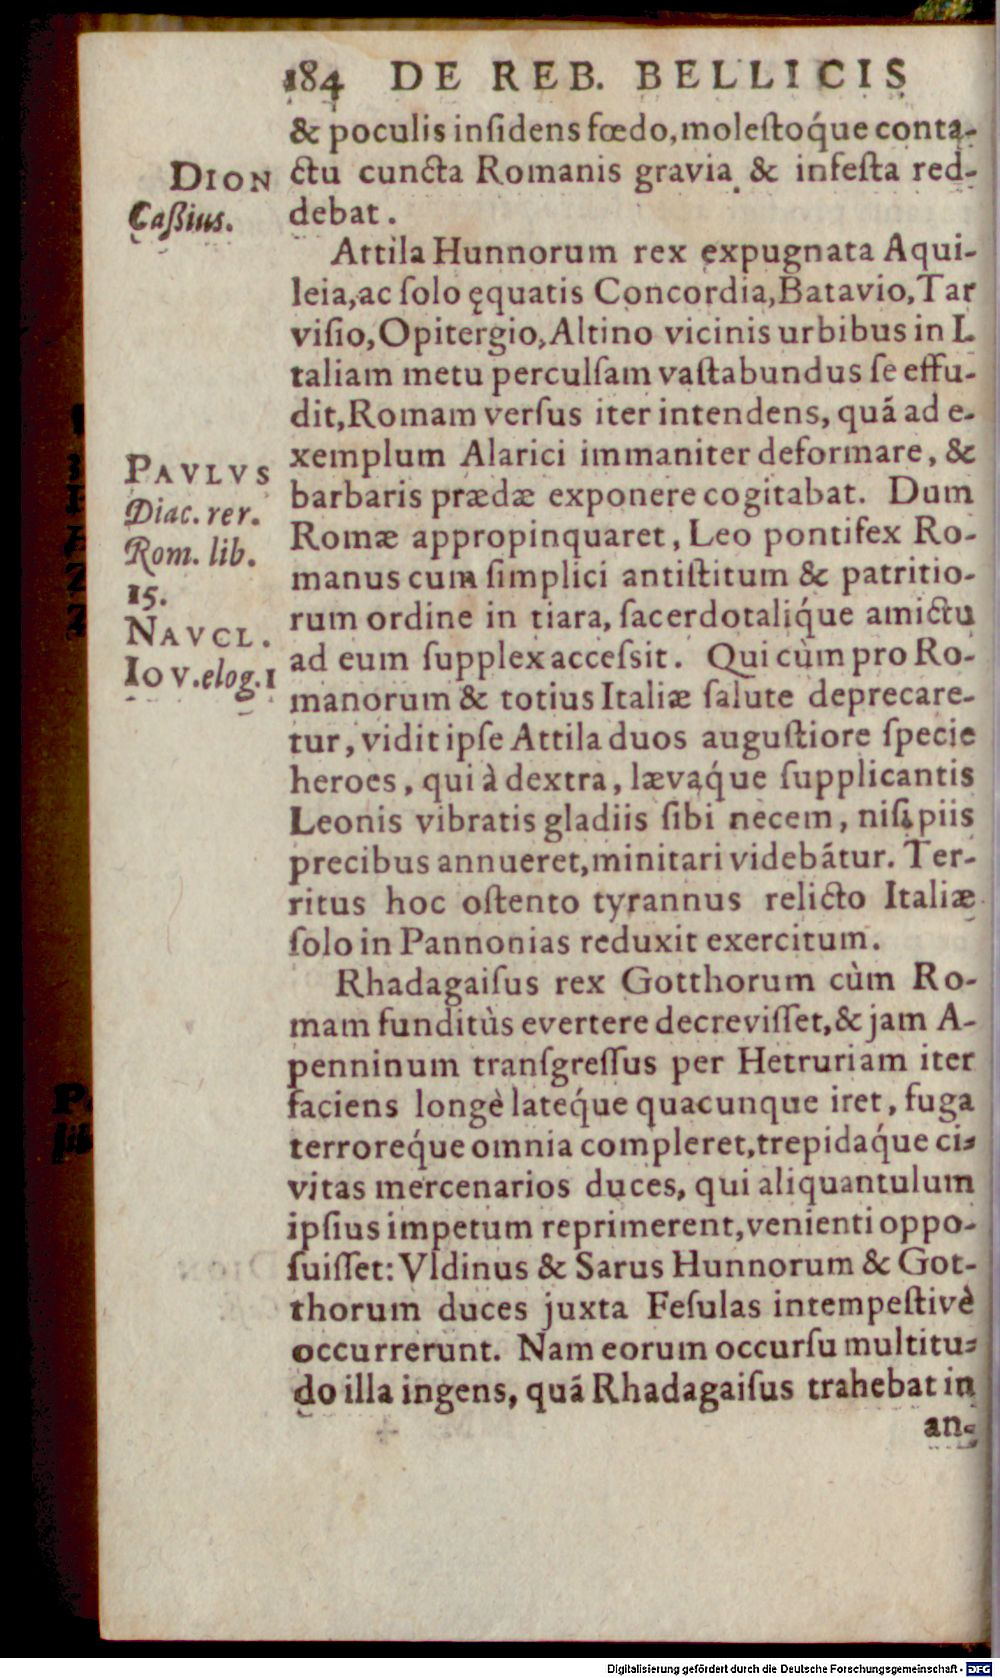 184 DE REB. BELLICIS
& poculis inſidens fœdo, moleſtoq́ue conta-
DION
ctu cuncta Romanis gravia & infeſta red-
Caßius.
debat.
Attila Hunnorum rex expugnata Aqui-
leia, ac ſolo ęquatis Concordia, Batavio, Tar
viſio, Opitergio, Altino vicinis urbibus in I-
taliam metu perculſam vaſtabundus ſe effu-
dit, Romam verſus iter intendens, quã ad e-
xemplum Alarici immaniter deformare, &
barbaris prædæ exponere cogitabat. Dum
Romæ appropinquaret, Leo pontifex Ro-
manus cum ſimplici antiſtitum & patritio-
rum ordine in tiara, ſacerdotaliq́ue amictu
ad eum ſupplex acceſsit. Qui cùm pro Ro-
manorum & totius Italiæ ſalute deprecare-
PAVLVS
Diac. rer.
Rom. lib.
15.
NAVCL.
IOV. elog. 1
tur, vidit ipſe Attila duos auguſtiore ſpecie
heroes, qui à dextra, lævaq́ue ſupplicantis
Leonis vibratis gladiis ſibi necem, niſi piis
precibus annueret, minitari videbãtur. Ter-
ritus hoc oſtento tyrannus relicto Italiæ
ſolo in Pannonias reduxit exercitum.
Rhadagaiſus rex Gotthorum cùm Ro-
mam funditùs evertere decreviſſet, & jam A-
penninum tranſgreſſus per Hetruriam iter
faciens longè lateq́ue quacunque iret, fuga
terroreq́ue omnia compleret, trepidaq́ue ci-
vitas mercenarios duces, qui aliquantulum
ipſius impetum reprimerent, venienti oppo-
ſuiſſet: Vldinus & Sarus Hunnorum & Got-
thorum duces juxta Feſulas intempeſtivè
occurrerunt. Nam eorum occurſu multitu-
do illa ingens, quã Rhadagaiſus trahebat in
an-
Digitalisierung gefördert durch die Deutsche Forschungsgemeinschaft - DFG